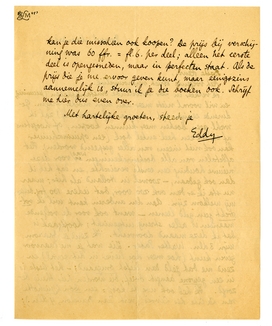 kan je die misschien ook koopen? De prijs bij verschij-
ning was 60 ffr. = fl. 6. per deel; alleen het eerste
deel is opengesneden, maar in perfecten staat. Als de
prijs die je me ervoor geven kent, maar eenigszins
aannemelijk is, stuur ik je die boeken ook. Schrijf
me hier dus even over.
Met hartelijke groeten, steeds je
Eddy